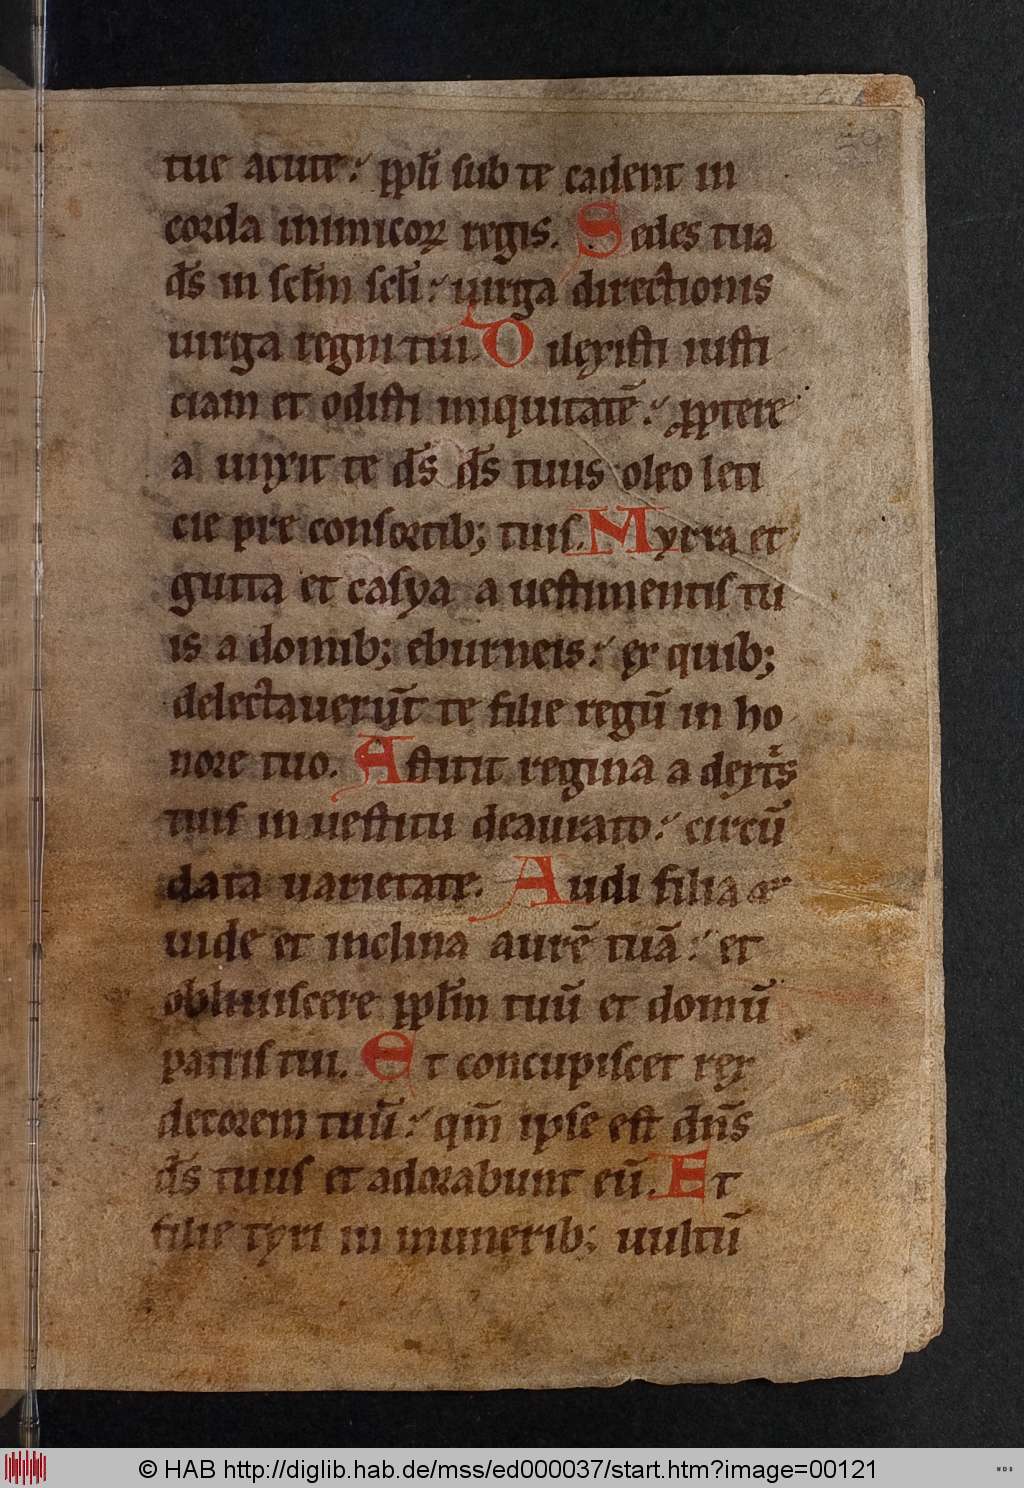 tue acute: pp̄li sub te cadent in
corda inimicoꝝ regis. Sedes tua
d̄s in scl̄m scl̄i: uirga directionis
uirga regni tui. Dilexisti iusti
ciam et odisti iniquitatē: ꝓptere
a unxit te d̄s d̄s tuus oleo leti
cie pre consortib; tuis. Myrra et
gutta et casya a uestimentis tu
is a domib; eburneis: ex quib;
delectauerūt te filie regū in ho
nore tuo. Astitit regina a dext̓s
tuis in uestitu deaurato: circū
data uarietate. Audi filia &
uide et inclina aurē tuā: et
obliuiscere pp̄lm tuū et domū
patris tui. Et concupiscet rex
decorem tuū: qm̄ ipse est dn̄s
d̄s tuus et adorabunt eū. Et
filie tyri in munerib; uultū
© HAB http://diglib.hab.de/mss/ed000037/start.htm?image=00121